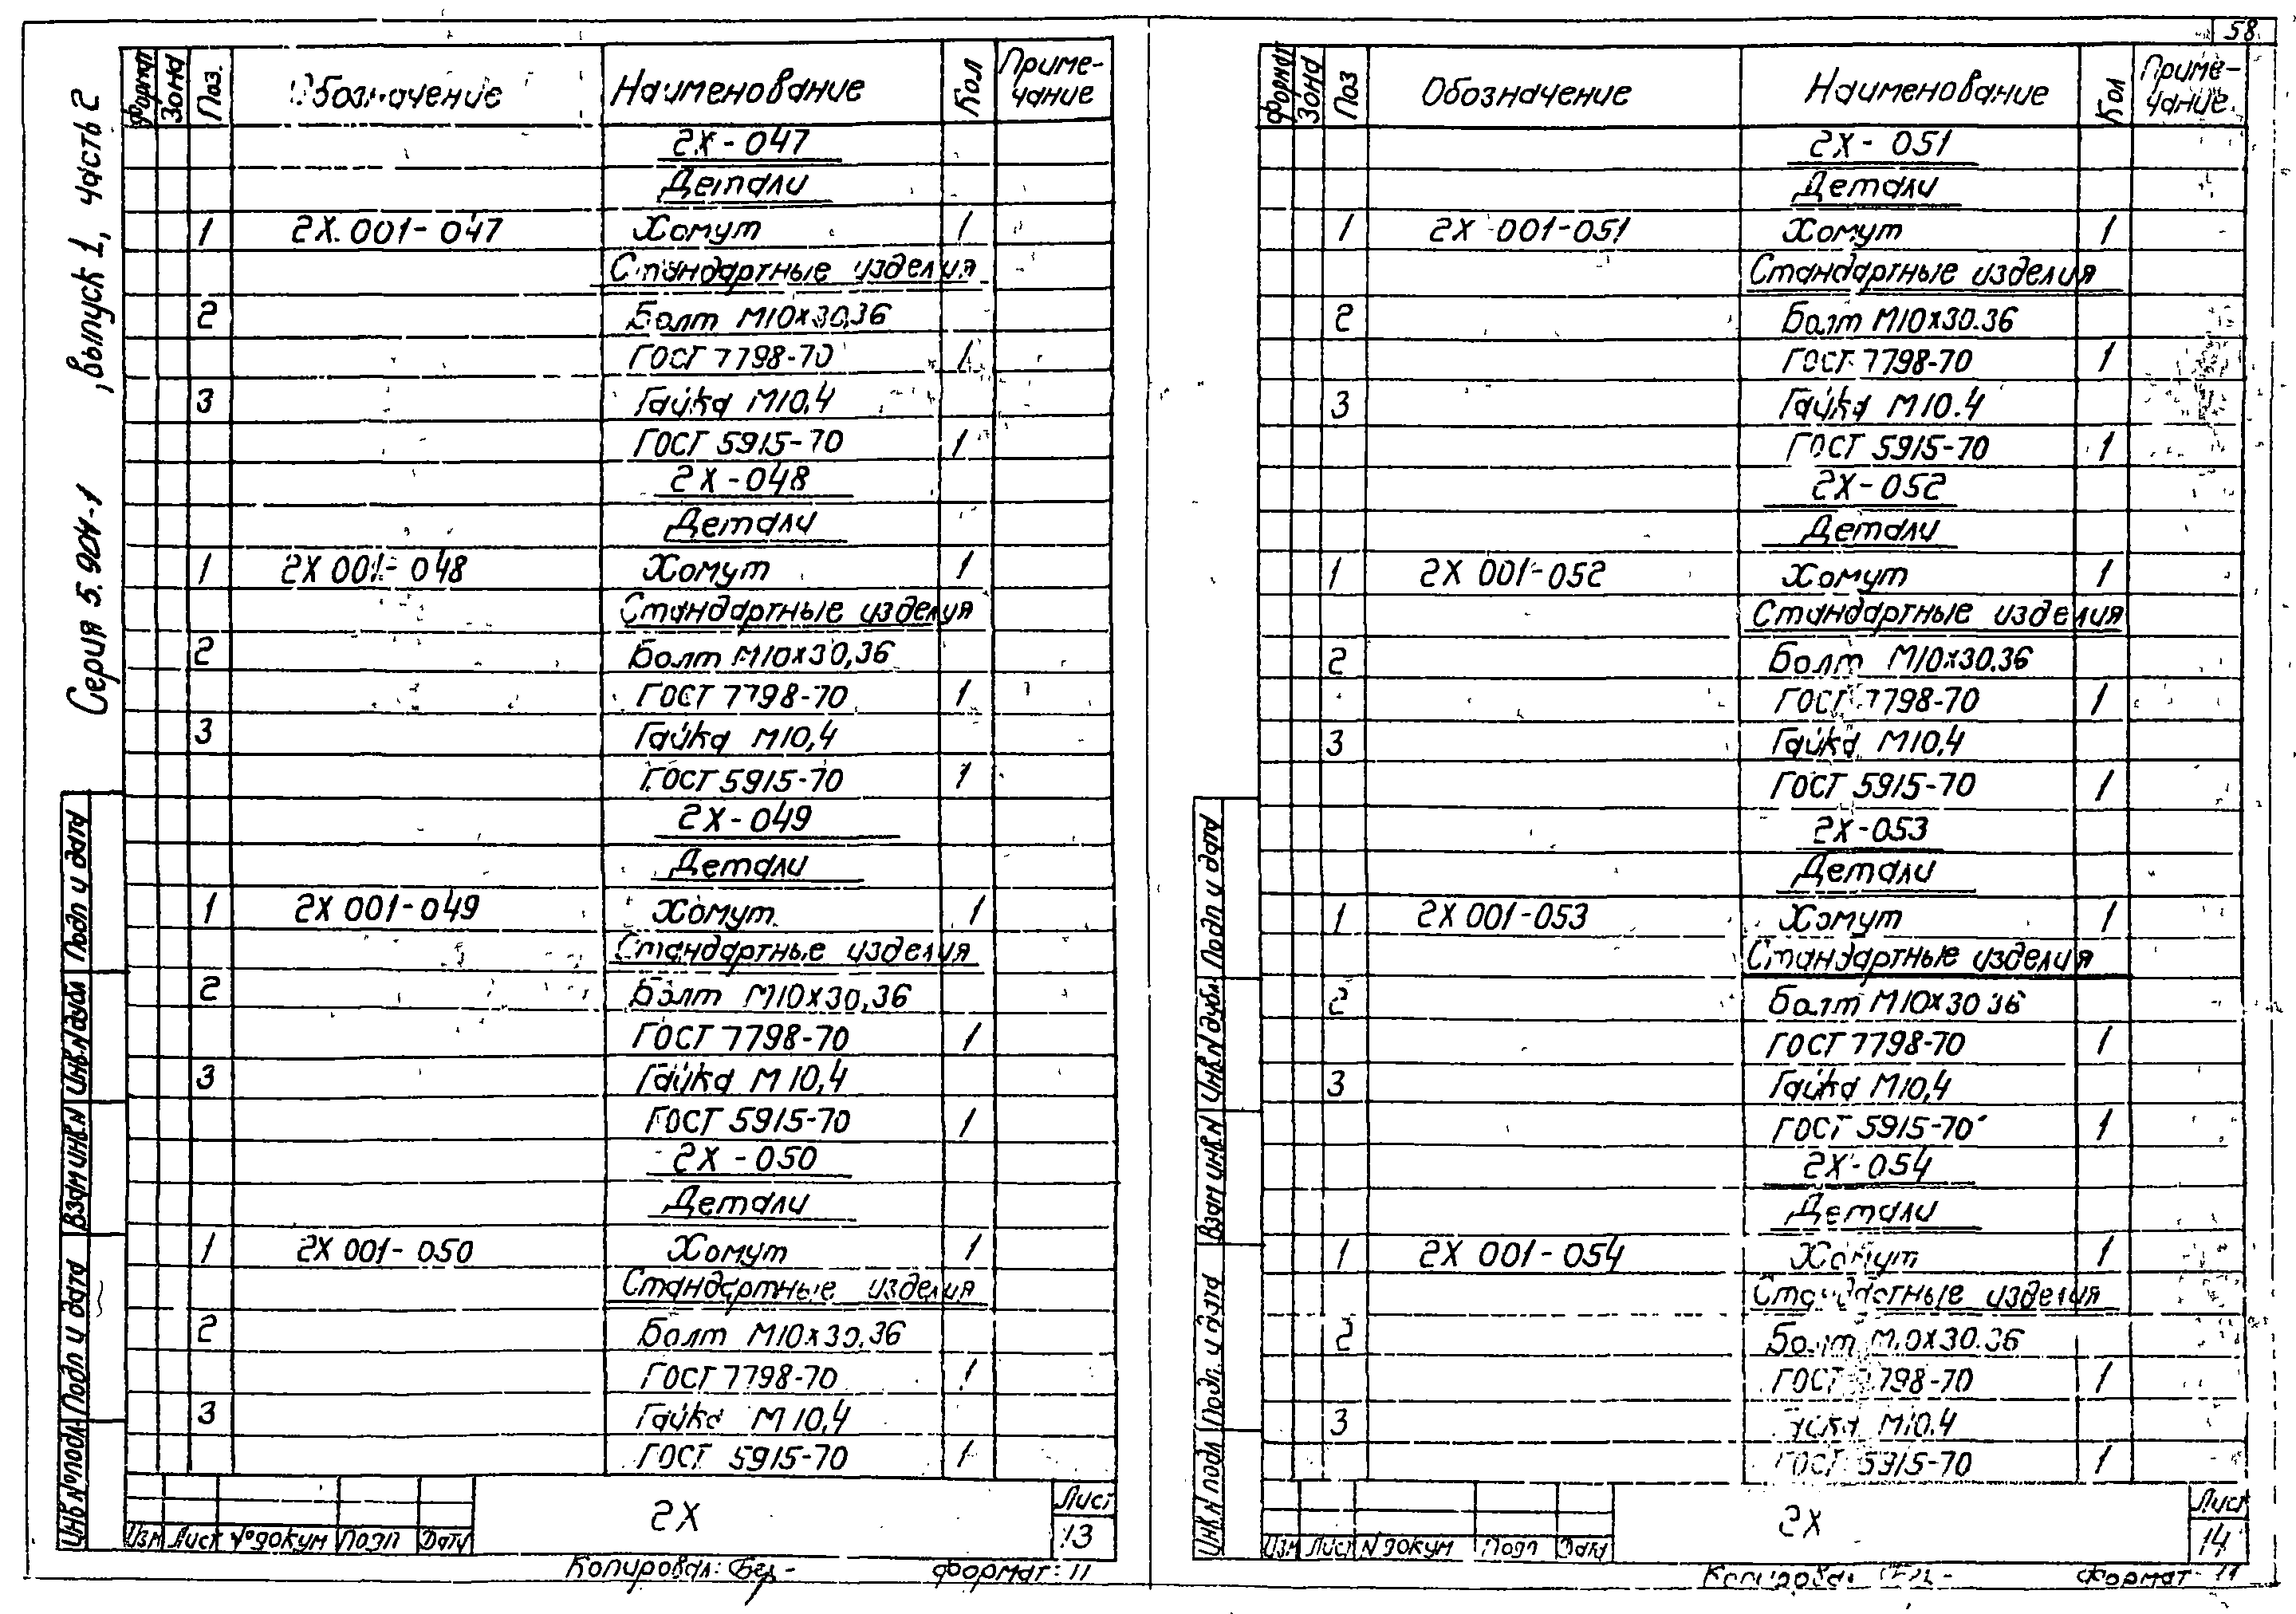 58
Серия 5.904-1 , выпуск 1, часть 2
Формат Зона Поз. Обозначение Наименование Кол Приме-
чание
2Х-047
Детали
1 2Х.001-047 Хомут 1
Стандартные изделия
2 Болт М10х30,36
ГОСТ 7798-70 1
3 Гайка М10,4
ГОСТ 5915-70 1
2Х-048
Детали
1 2Х 001-048 Хомут 1
Стандартные изделия
2 Болт М10х30,36
ГОСТ 7798-70 1
3 Гайка М10,4
ГОСТ 5915-70 1
2Х-049
Детали
1 2Х 001-049 Хомут 1
Стандартные изделия
2 Болт М10х30,36
ГОСТ 7798-70 1
3 Гайка М10,4
ГОСТ 5915-70 1
2Х-050
Детали
1 2Х 001-050 Хомут 1
Стандартные изделия
2 Болт М10х30,36
ГОСТ 7798-70 1
3 Гайка М10,4
ГОСТ 5915-70 1
Инв №подл Подп и дата Взам инв N Инв N дубл Подп и дата
Изм Лист №докум Подп Дата
2Х
Лист
13
Копировал: Формат: 11
Формат Зона Поз Обозначение Наименование Кол Приме-
чание
2Х-051
Детали
1 2Х 001-051 Хомут 1
Стандартные изделия
2 Болт М10х30.36
ГОСТ 7798-70 1
3 Гайка М10.4
ГОСТ 5915-70 1
2Х-052
Детали
1 2Х 001-052 Хомут 1
Стандартные изделия
2 Болт М10х30.36
ГОСТ 7798-70 1
3 Гайка М10,4
ГОСТ 5915-70 1
2Х-053
Детали
1 2Х 001-053 Хомут 1
Стандартные изделия
2 Болт М10х30 36
ГОСТ 7798-70 1
3 Гайка М10,4
ГОСТ 5915-70 1
2Х-054
Детали
1 2Х 001-054 Хомут 1
Стандартные изделия
2 Болт М10х30.36
ГОСТ 7798-70 1
3 Гайка М10.4
ГОСТ 5915-70 1
Инв N подл Подп. и дата Взам инв N Инв N дубл Подп и дата
Изм Лист N докум Подп Дата
2Х
Лист
14
Копировал Формат 11